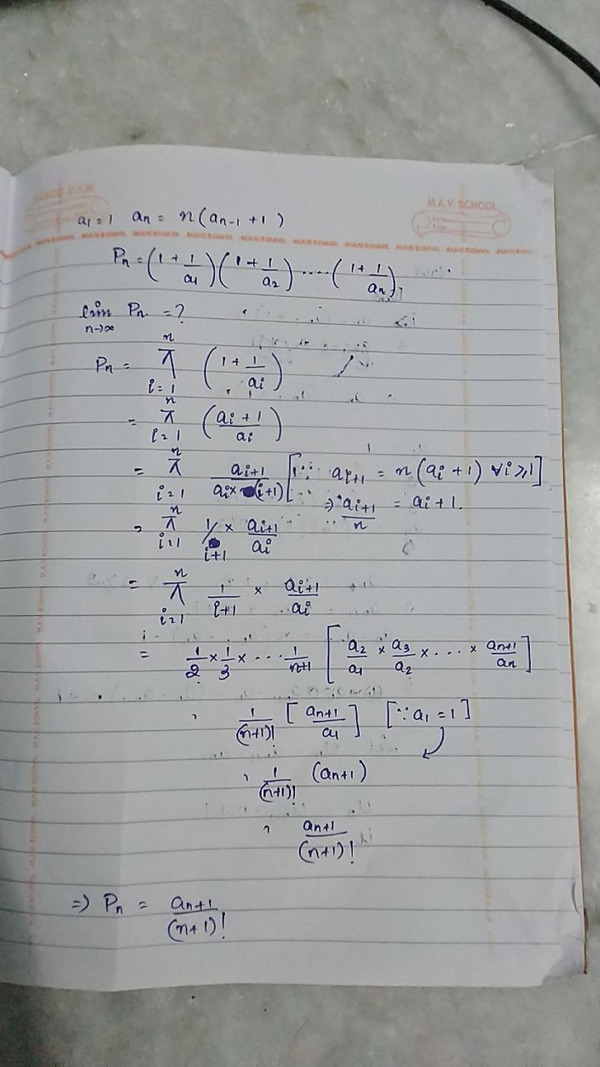 M.A.V. SCHOOL
a₁ = 1 aₙ = n(aₙ₋₁ + 1)
Pₙ = (1 + 1/a₁)(1 + 1/a₂) ..... (1 + 1/aₙ)
lim n→∞ Pₙ = ?
Pₙ = π i=1 n (1 + 1/aᵢ)
= π i=1 n (aᵢ + 1/aᵢ)
= π i=1 n aᵢ₊₁/aᵢ × (i+1) [∵ aᵢ₊₁ = n(aᵢ + 1) ∀ i ≥ 1]
⇒ aᵢ₊₁/n = aᵢ + 1.
= π i=1 n 1/i+1 × aᵢ₊₁/aᵢ
= π i=1 n 1/i+1 × aᵢ₊₁/aᵢ
= 1/2 × 1/3 × ... 1/n+1 [a₂/a₁ × a₃/a₂ × ... × aₙ₊₁/aₙ]
1/(n+1)! [aₙ₊₁/a₁] [∵ a₁ = 1]
1/(n+1)! (aₙ₊₁)
aₙ₊₁/(n+1)!
⇒ Pₙ = aₙ₊₁/(n+1)!